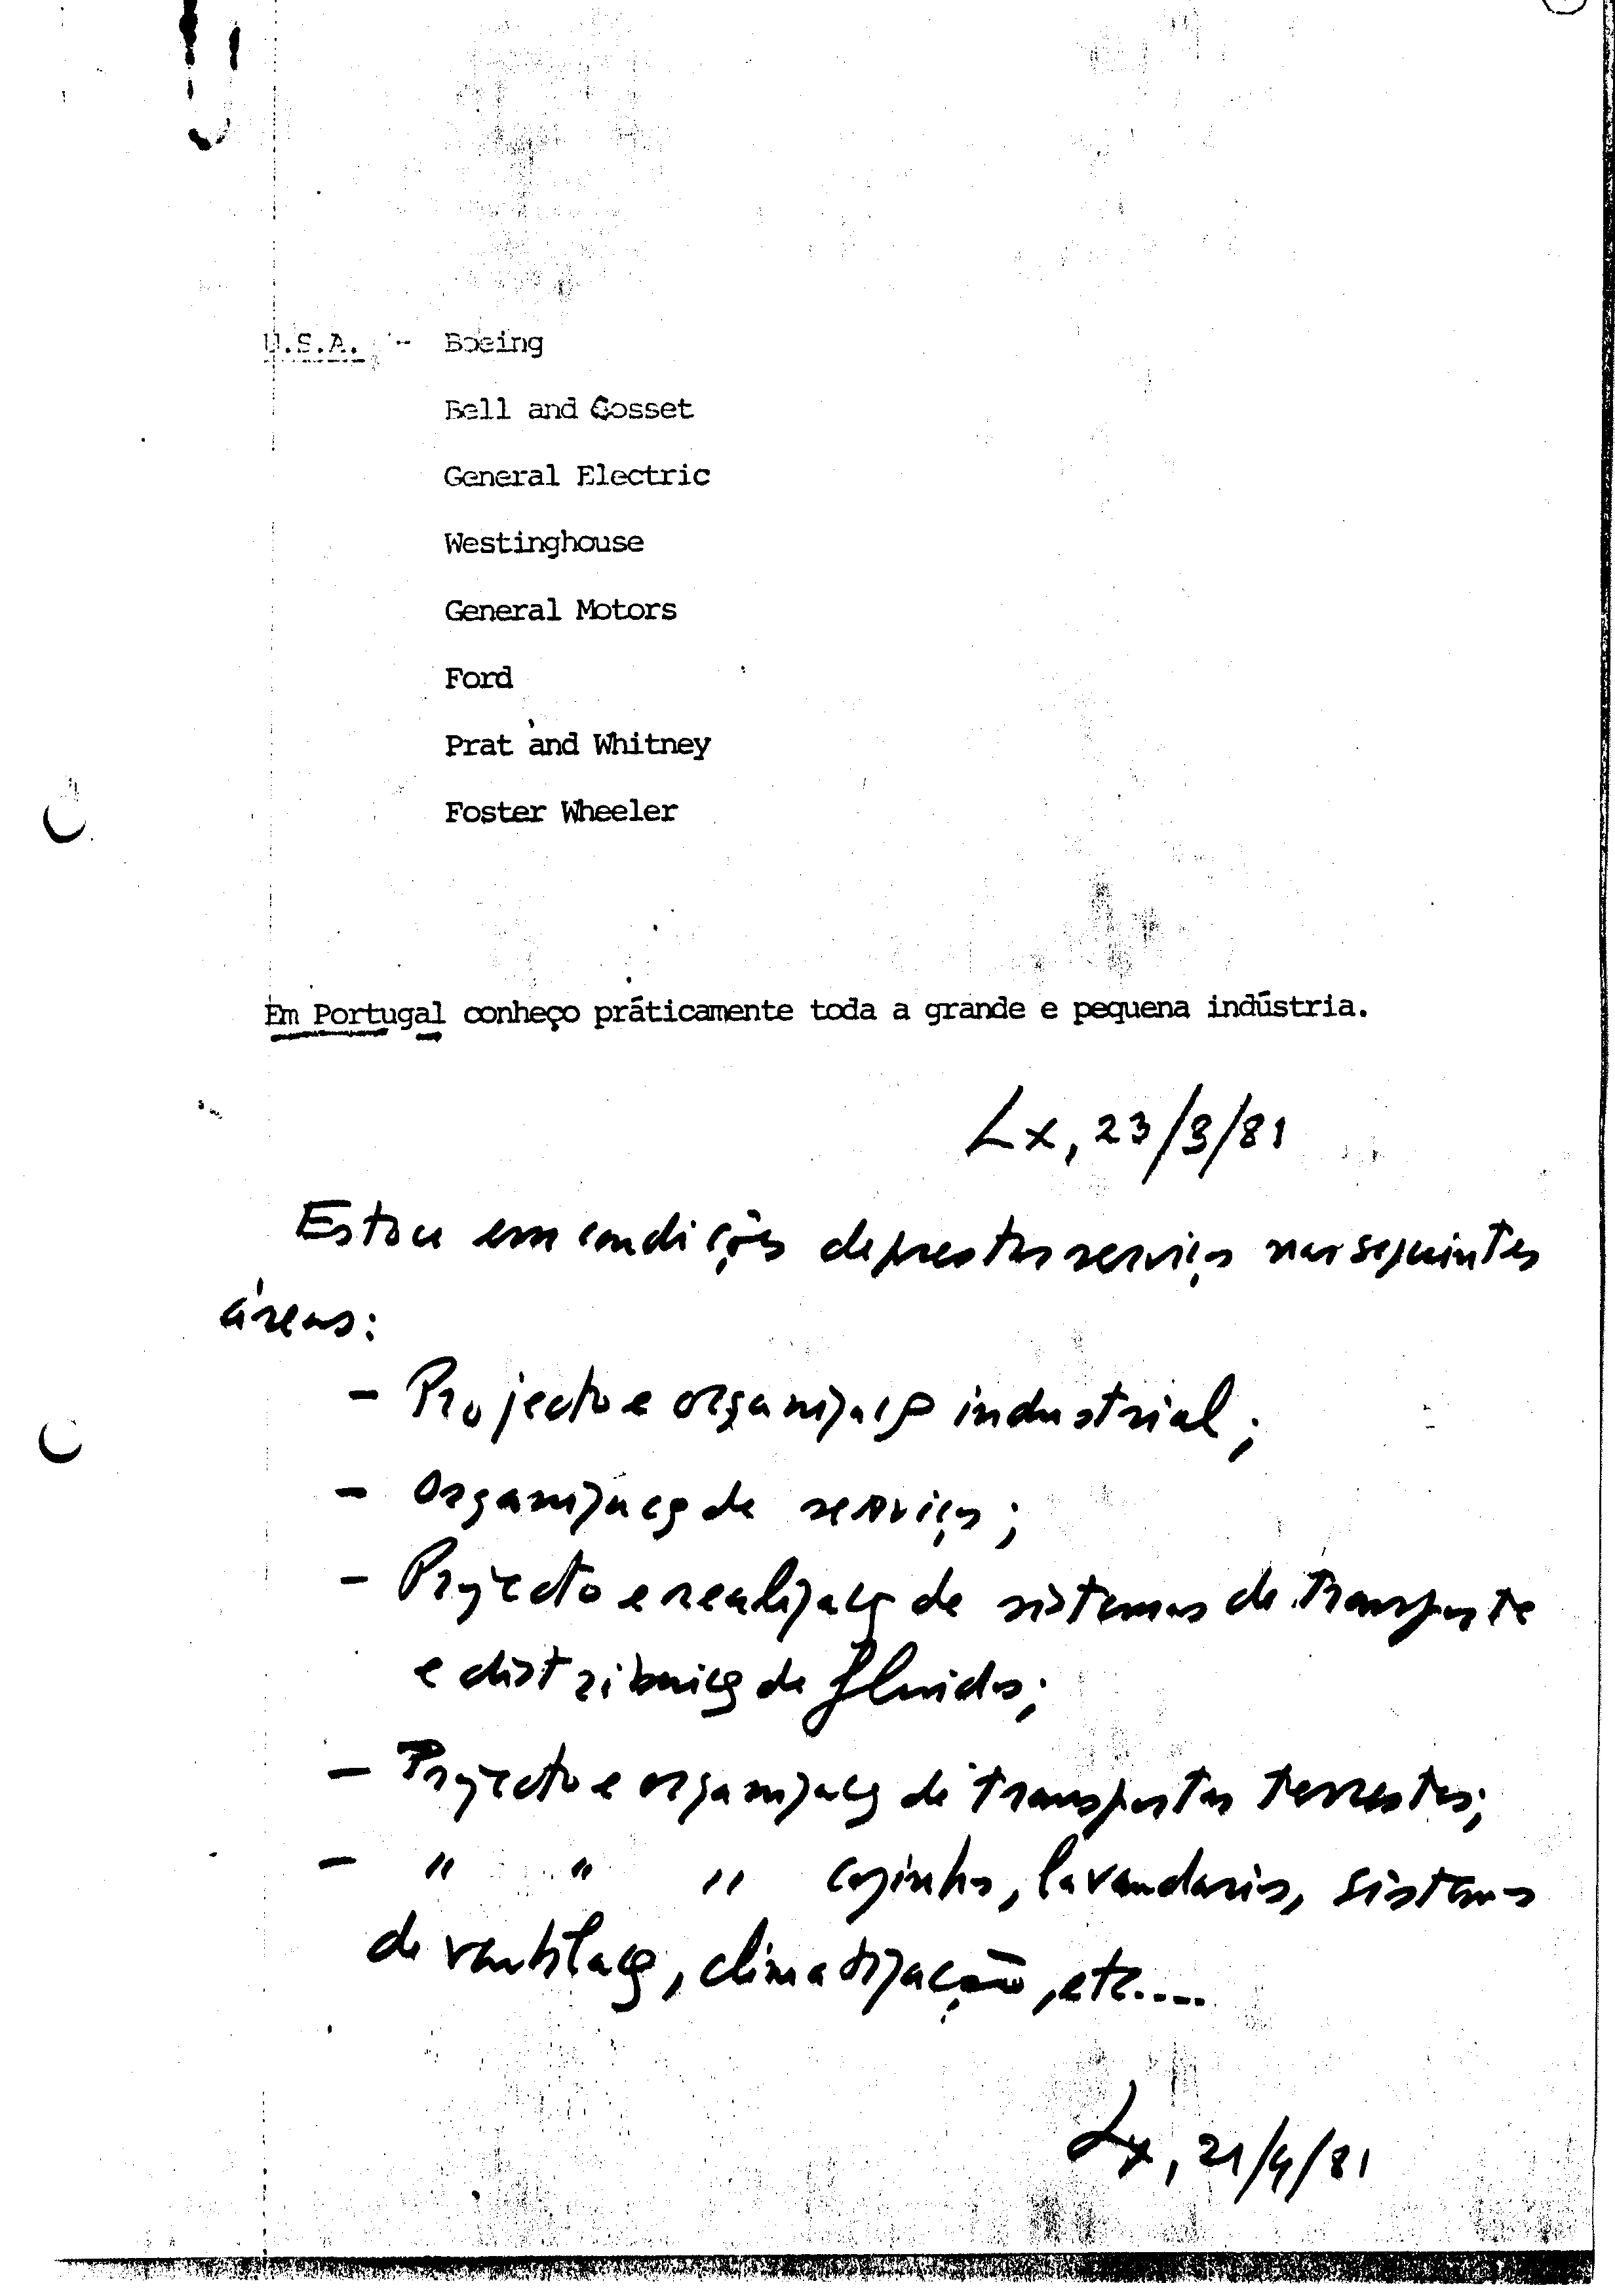 U.S.A. - Boeing
Bell and Gosset
General Electric
Westinghouse
General Motors
Ford
Prat and Whitney
Foster Wheeler
Em Portugal conheço práticamente toda a grande e pequena indústria.
Lx, 23/3/81
Estou em condições de prestar serviços nas seguintes
áreas:
- Projecto e organização industrial;
- Organização de serviços;
- Projecto e realização de sistemas de transporte
e distribuição de fluidos;
- Projecto e organização de transportes terrestes;
- " " " cozinhas, lavandarias, sistemas
de ventilação, climatização, etc....
Lx, 21/4/81